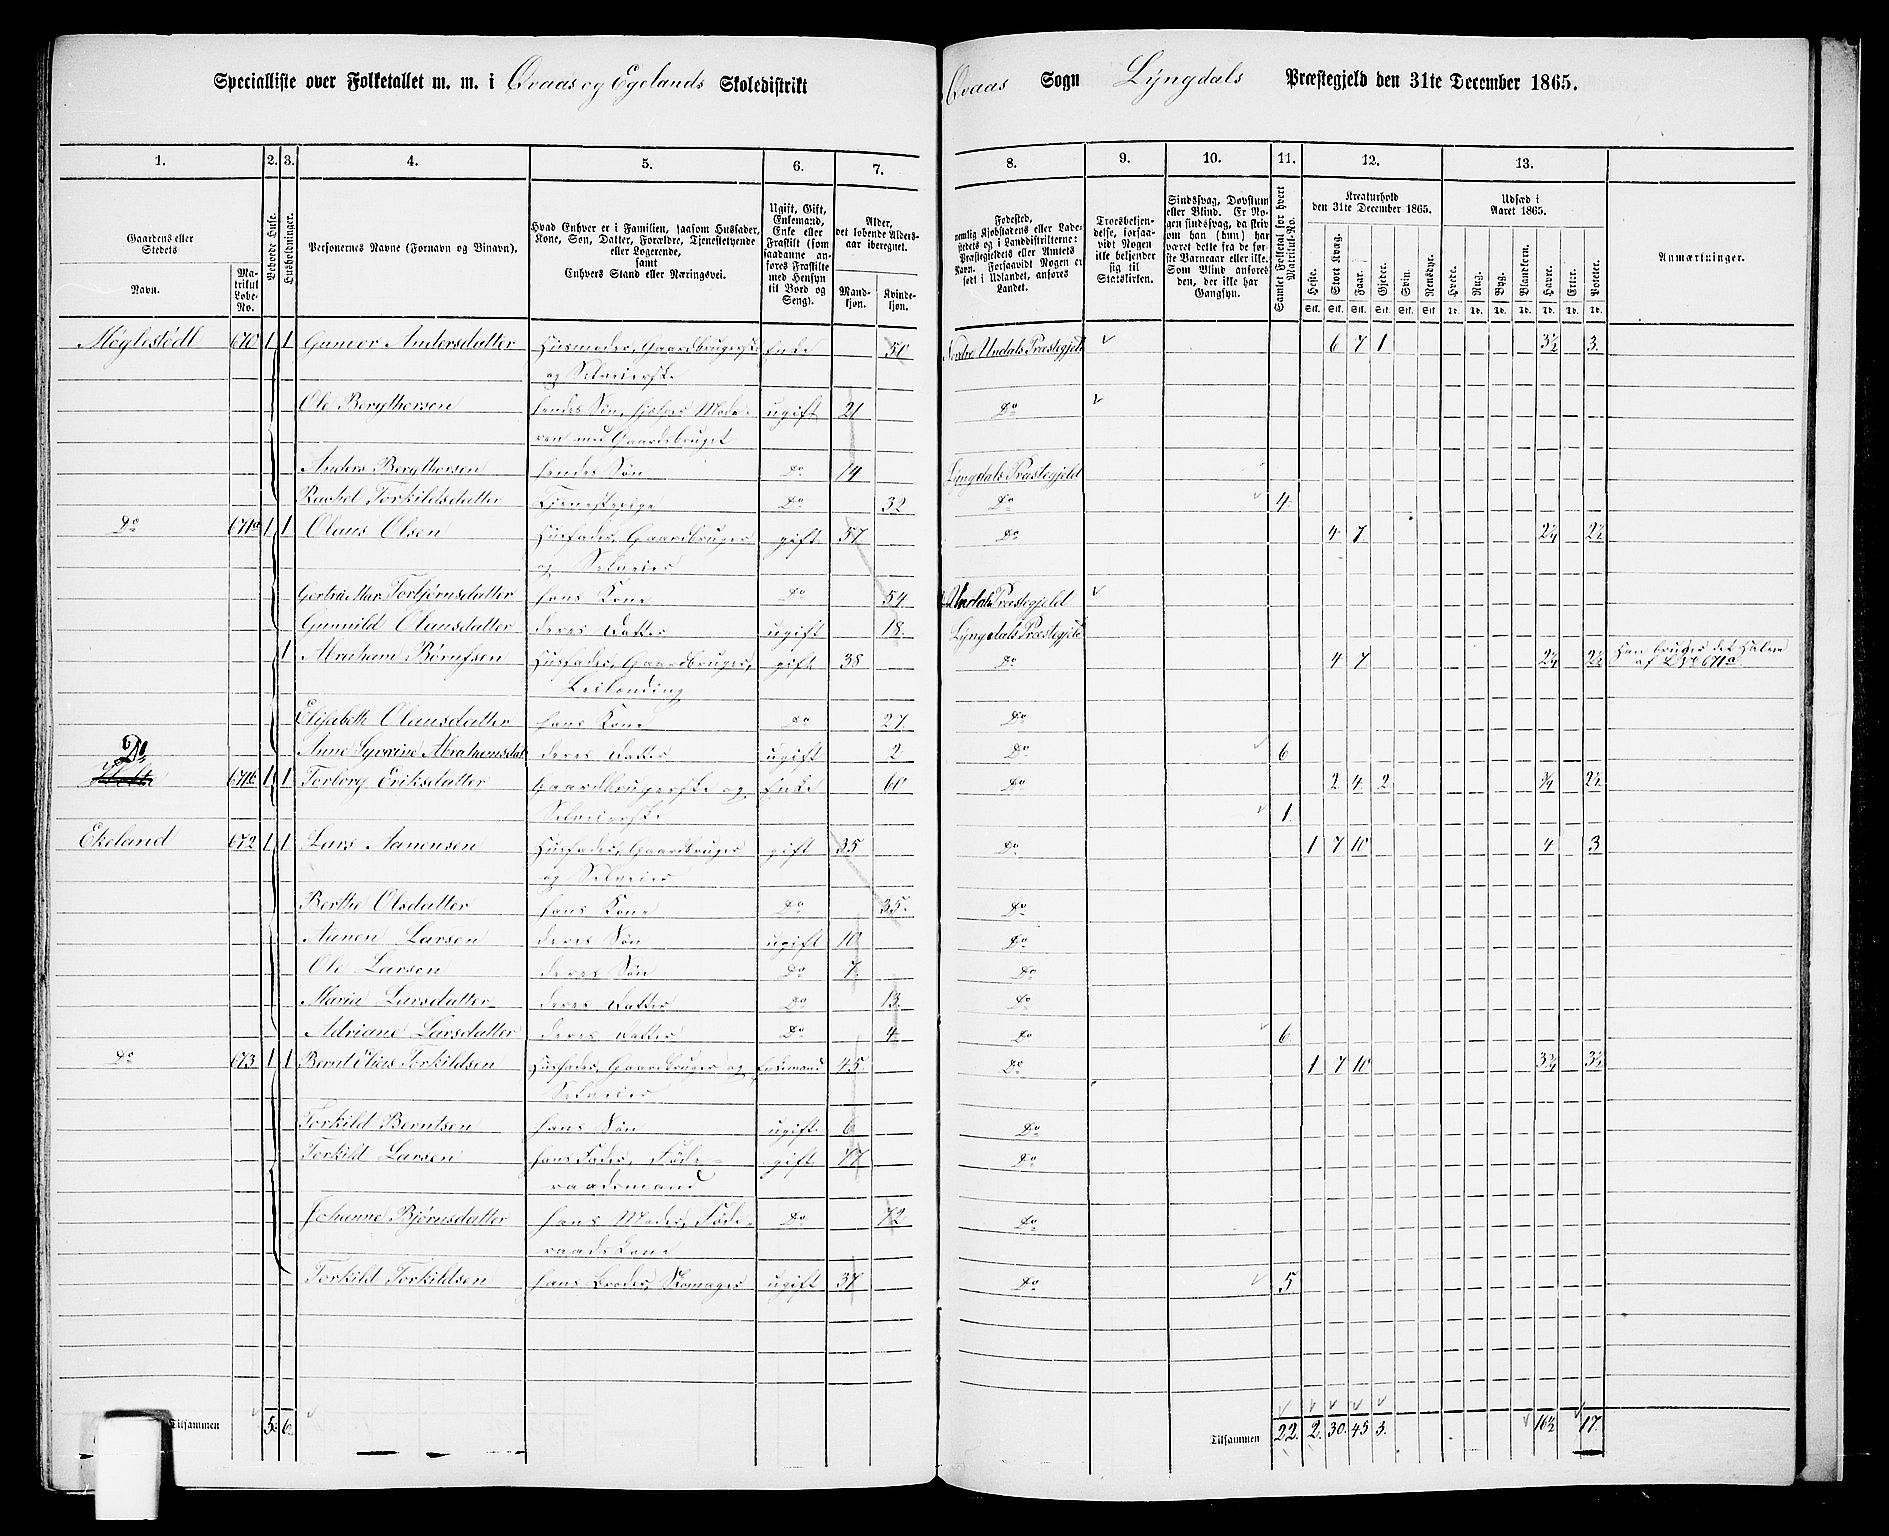 Specialliste over Folketallet m. m. i Qvaas og Egelands Skoledistrikt Qvaas Sogn Lyngdals Præstegjeld den 31te December 1865.
1. 2. 3. 4. 5. 6. 7. 8. 9. 10. 11. 12. 13.
Gaardens eller Stedets Navn.
Matrikul Løbe-No.
Beboede Huse.
Husholdninger.
Personernes Navne (Fornavn og Binavn).
Hvad Enhver er i Familien, saasom Husfader, Kone, Søn, Datter, Forældre, Tjenestetyende eller Logerende, samt Enhvers Stand eller Næringsvei.
Ugift, Gift, Enkemand, Enke eller Fraskilt (som saadanne anføres Fraskilte med Hensyn til Bord og Seng).
Alder, det løbende Aldersaar iberegnet.
Mandkjøn. Kvindekjøn.
Fødested, nemlig Kjøbstadens eller Ladestedets og i Landdistrikterne: Præstegjeldets eller Amtets Navn. Forsaavidt Nogen er født i Udlandet, anføres Landet.
Troesbekjendelse, forsaavidt Nogen ikke bekjender sig til Statskirken.
Sindssvag, Døvstum eller Blind. Er Nogen sindssvag, da skriv om han (hun) har været dette fra de første Barneaar eller ikke. Som Blind anføres den, der ikke har Gangsyn.
Samlet Folketal for hvert Matrikul-No.
Kreaturhold den 31te December 1865.
Heste. Stort Kvæg. Faar. Gjeder. Svin. Rensdyr.
Udsæd i Aaret 1865.
Hvede. Rug. Byg. Blandkorn. Havre. Erter. Poteter.
Anmærkninger.
Stk. Stk. Stk. Stk. Stk. Stk. Td. Td. Td. Td. Td. Td. Td.
Møglestødl 670 1 1 Gunvor Andersdatter Husmoder, Gaardbrugerske Enke 50 Nordre Undals Præstegjeld 6 7 1 3½ 3
og Selveierske
Ole Bergthorsen hendes Søn, hjelper Mode- ugift 21 Do
ren med Gaardsbruget
Anders Bergthorsen hendes Søn Do 14 Lyngdals Præstegjeld
Rachel Torkildsdatter Tjenestepige Do 32 Do 4
Do 671a 1 1 Olaus Olsen Husfader, Gaardbruger gift 57 Do 4 7 2¼ 2½
og Selveier
Torbjørnsdatter hans Kone Do 54 Undals Præstegjeld
Gunnild Olausdatter deres Datter ugift 18 Lyngdals Præstegjeld
1 Abraham Børufsen Husfader, Gaardbruger, gift 38 Do 4 7 2¼ 2½ Han bruger det Halve
Leilænding af LNo 671a
Elisabeth Olausdatter hans Kone Do 27 Do
Do Anne Syvrine Abrahamsdat deres Datter ugift 2 Do 6
671b 1 1 Torborg Eriksdatter Gaardbrugerske og Enke 60 Do 2 4 2 ¾ 2½
Selveierske 1
Ekeland 672 1 1 Lars Aanensen Husfader, Gaardbruger gift 35 Do 1 7 10 4 3
og Selveier
Berthe Olsdatter hans Kone Do 35 Do
Aanen Larsen deres Søn ugift 10 Do
Ole Larsen deres Søn Do 7 Do
Maria Larsdatter deres Datter Do 13 Do
Adriane Larsdatter deres Datter Do 4 Do 6
Do 673 1 1 Bernt Elias Torkildsen Husfader, Gaardbruger og Enkemand 45 Do 1 7 10 3¾ 3½
Selveier
Torkild Berntsen hans Søn ugift 6 Do
Torkild Larsen hans Fader, Føde- gift 77 Do
raadsmand
Johanne Bjørnsdatter hans Moder, Føde- Do 72 Do
raadskone
Torkild Torkildsen hans Broder, Skomager ugift 37 Do 5
Tilsammen 5 6 Tilsammen 22 2 30 45 3 16½ 17